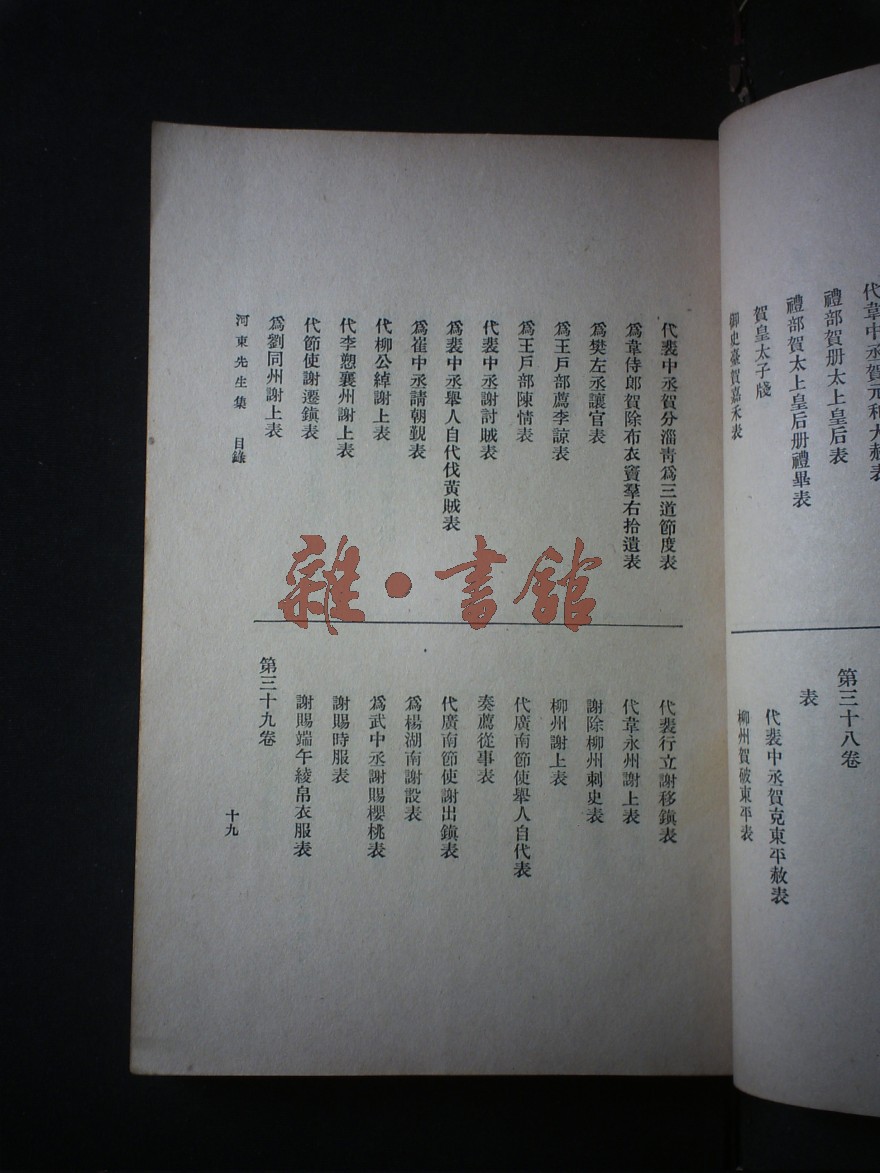 代韋中丞賀元和大赦表
禮部賀册太上皇后表
禮部賀太上皇后册禮畢表
賀皇太子牋
御史臺賀嘉禾表
第三十八卷
表
代裴中丞賀克東平赦表
柳州賀破東平表
代裴中丞賀分淄靑爲三道節度表
爲韋侍郎賀除布衣竇羣右拾遺表
爲樊左丞讓官表
爲王戶部薦李諒表
爲王戶部陳情表
代裴中丞謝討賊表
爲裴中丞舉人自代伐黃賊表
爲崔中丞請朝覲表
代柳公綽謝上表
代李愬襄州謝上表
代節使謝遷鎭表
爲劉同州謝上表
代裴行立謝移鎭表
代韋永州謝上表
謝除柳州刺史表
柳州謝上表
代廣南節使舉人自代表
奏薦從事表
代廣南節使謝出鎭表
爲楊湖南謝設表
爲武中丞謝賜櫻桃表
謝賜時服表
謝賜端午綾帛衣服表
第三十九卷
河東先生集 目錄
十九
雜·書館